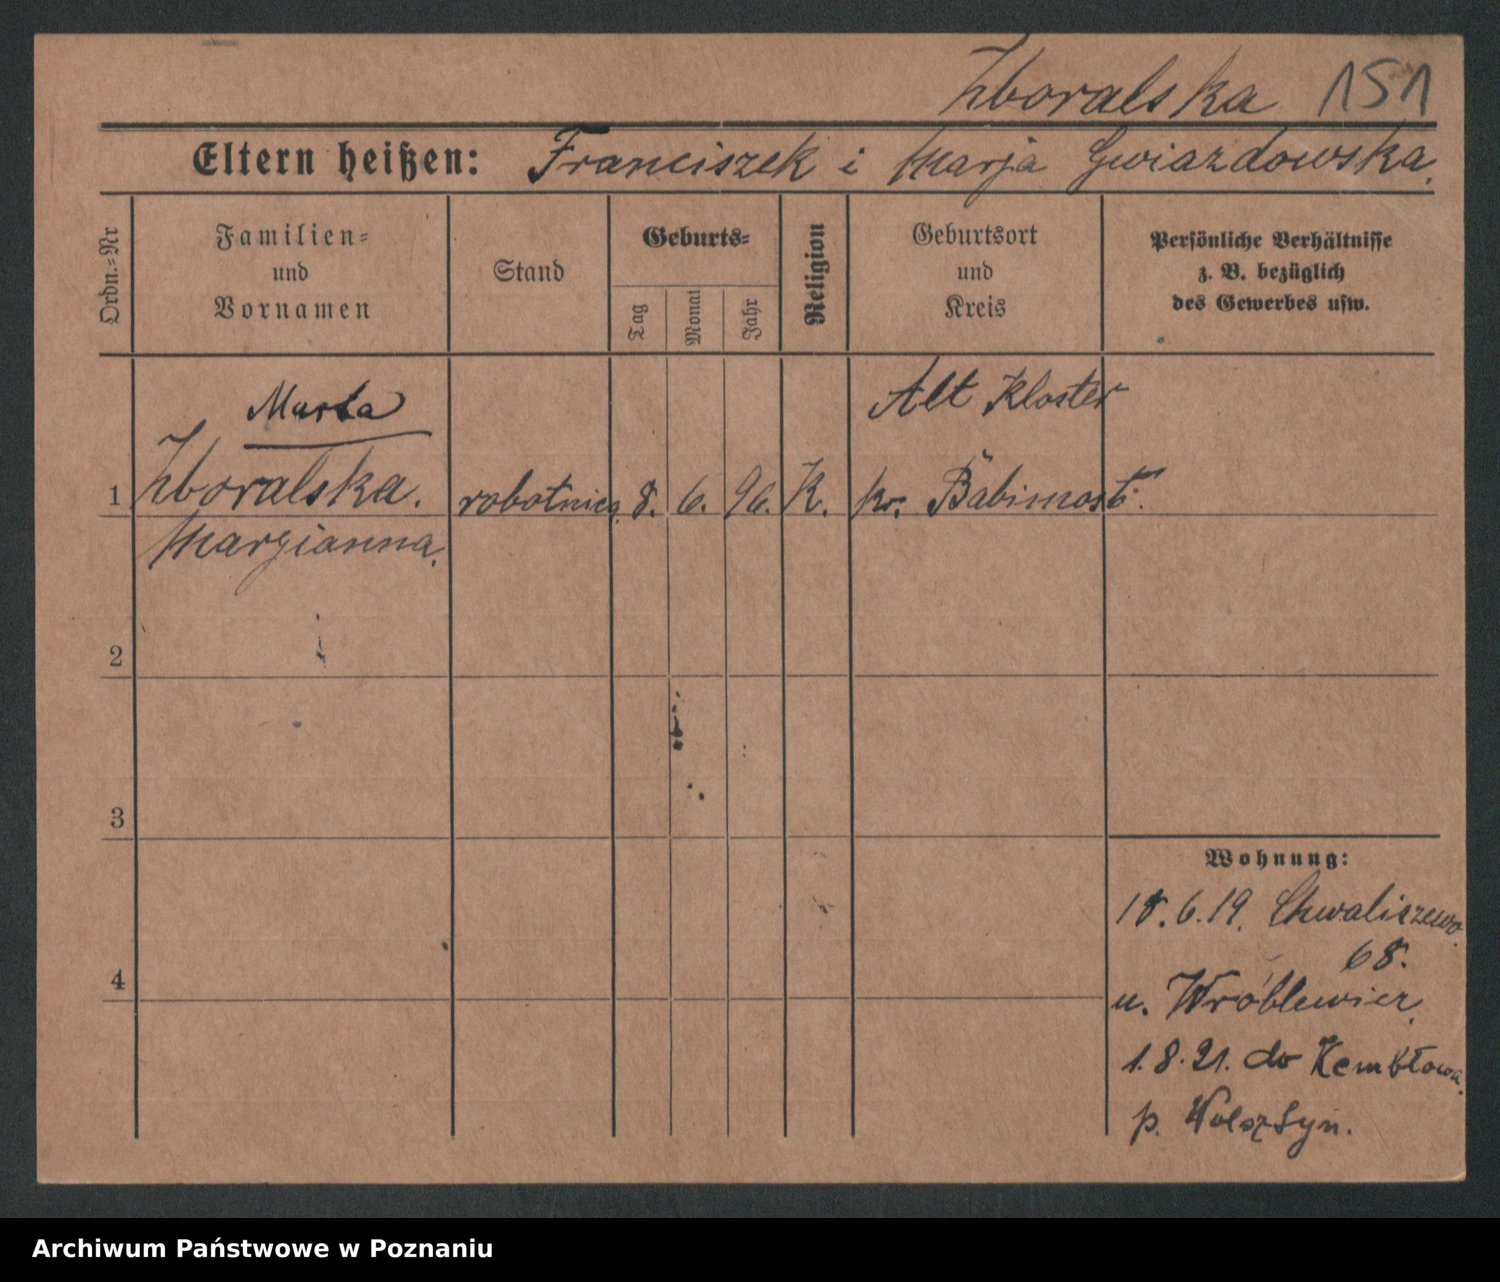 Zboralska 151
Eltern heißen: Franciszek i Marja Gwiazdowska.
Ordn.=Nr
Familien=
und
Vornamen
Stand
Geburts=
Tag
Monat
Jahr
Religion
Geburtsort
und
Kreis
Persönliche Verhältnisse
z. B. bezüglich
des Gewerbes usw.
Marta Alt Kloster
1 Zboralska. robotnica. 8. 6. 96. K. kr. Babimost.
Marjianna.
2
3
Wohnung:
18. 6. 19. Chwaliszewo
68.
4
u. Wróblewicz.
1. 8. 21. do Kembłowa.
p. Wolsztyn.
Archiwum Państwowe w Poznaniu